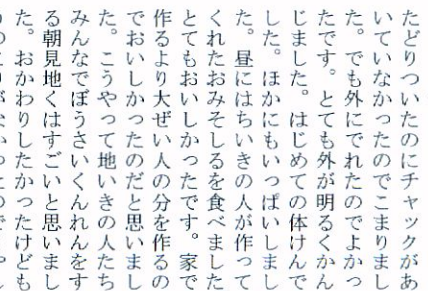 たどりついたのにチャックがあ
いていなかったのでこまりまし
た。でも外にでれたのでよかっ
たです。とても外が明るくかん
じました。はじめての体けんで
した。ほかにもいっぱいしまし
た。昼にはちいきの人が作って
くれたおみそしるを食べました
とてもおいしかったです。家で
作るより大ぜい人の分を作るの
でおいしかったのだと思いまし
た。こうやって地いきの人たち
みんなでぼうさいくんれんをす
る朝見地くはすごいと思いまし
た。おかわりしたかったけども